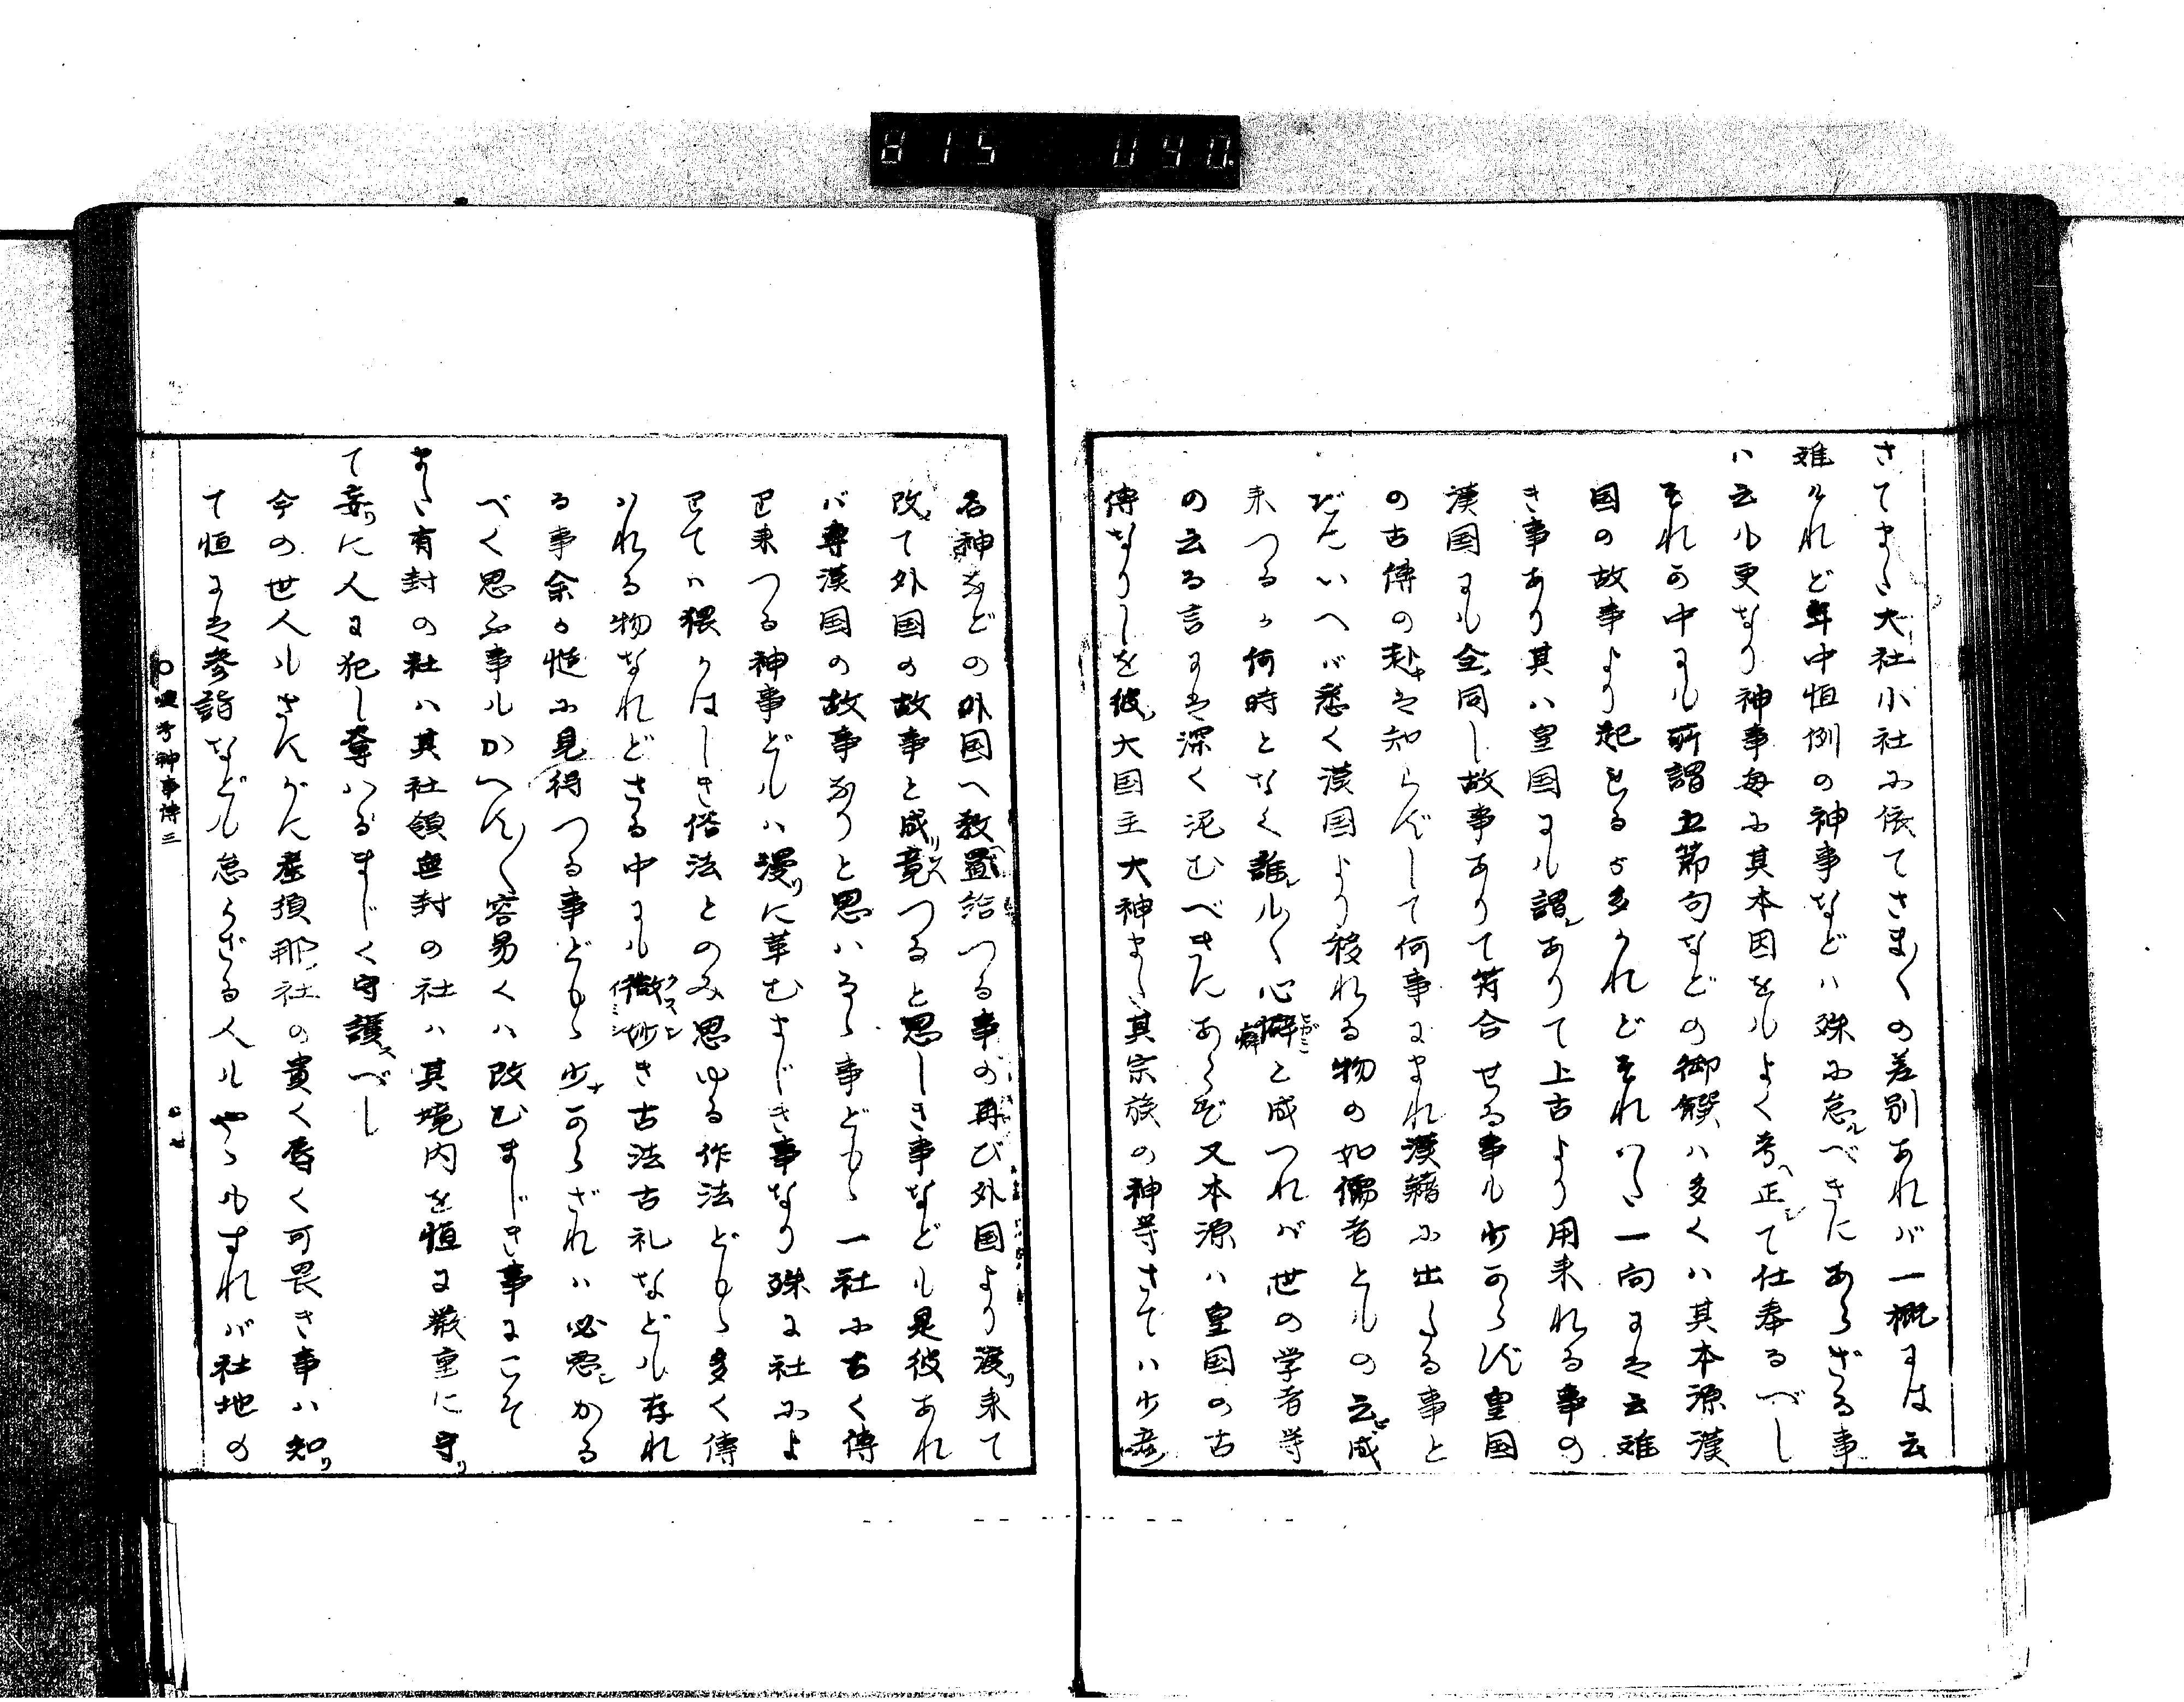 さてまた大社小社に依てさま〴〵の差別あれば一概には云
難けれど年中恒例の神事などハ殊に怠るべきにあらざる事
ハ云も更なり神事毎に其本因をもよく考へ正して仕奉るべし
それの中にも所謂五節句などの御饌ハ多くハ其本源漢
国の故事より起たるが多かれどそれハた一向には云難
き事あり其ハ皇国にも謂ありて上古より用来れる事の
漢国にも全同し故事ありて符合せる事も少からず皇国
の古傳の趣をば知らずして何事にまれ漢籍に出たる事と
だにいへバ悉く漢国より移れる物の如儒者どもの云ヒ成
来つるが何時となく誰も〳〵心癖と成つれバ世の学者等
の云る言には深く泥むべきにあらず又本源ハ皇国の古
傳なりしを彼大国主大神また其宗族の神等さてハ少彦
名神などの外国へ教置給つる事の再び外国より渡り来て
改て外国の故事と成竟つると思しき事なども是彼あれ
バ専漢国の故事なりと思ハるゝ事どもゝ一社に古く傳
已来つる神事どもハ漫りに革むまじき事なり殊に社によ
りてハ猥がはしき俗法とのみ思ゆる作法どもゝ多く傳
ハれる物なれどさる中にも微妙き古法古礼なども存れ
る事余が慥に見得つる事どもゝ少からざれハ必忽かる
べく思ふ事もかへす〴〵容易くハ改むまじき事にこそ
また有封の社ハ其社領無封の社ハ其境内を恒に厳重に守り
て妄りに人に犯し奪ハるまじく守護べし
今の世人もさすがに産須那社の貴く辱く可畏き事ハ知り
て恒には参詣なども怠らざる人もやゝもすれバ社地の
考神事傳三